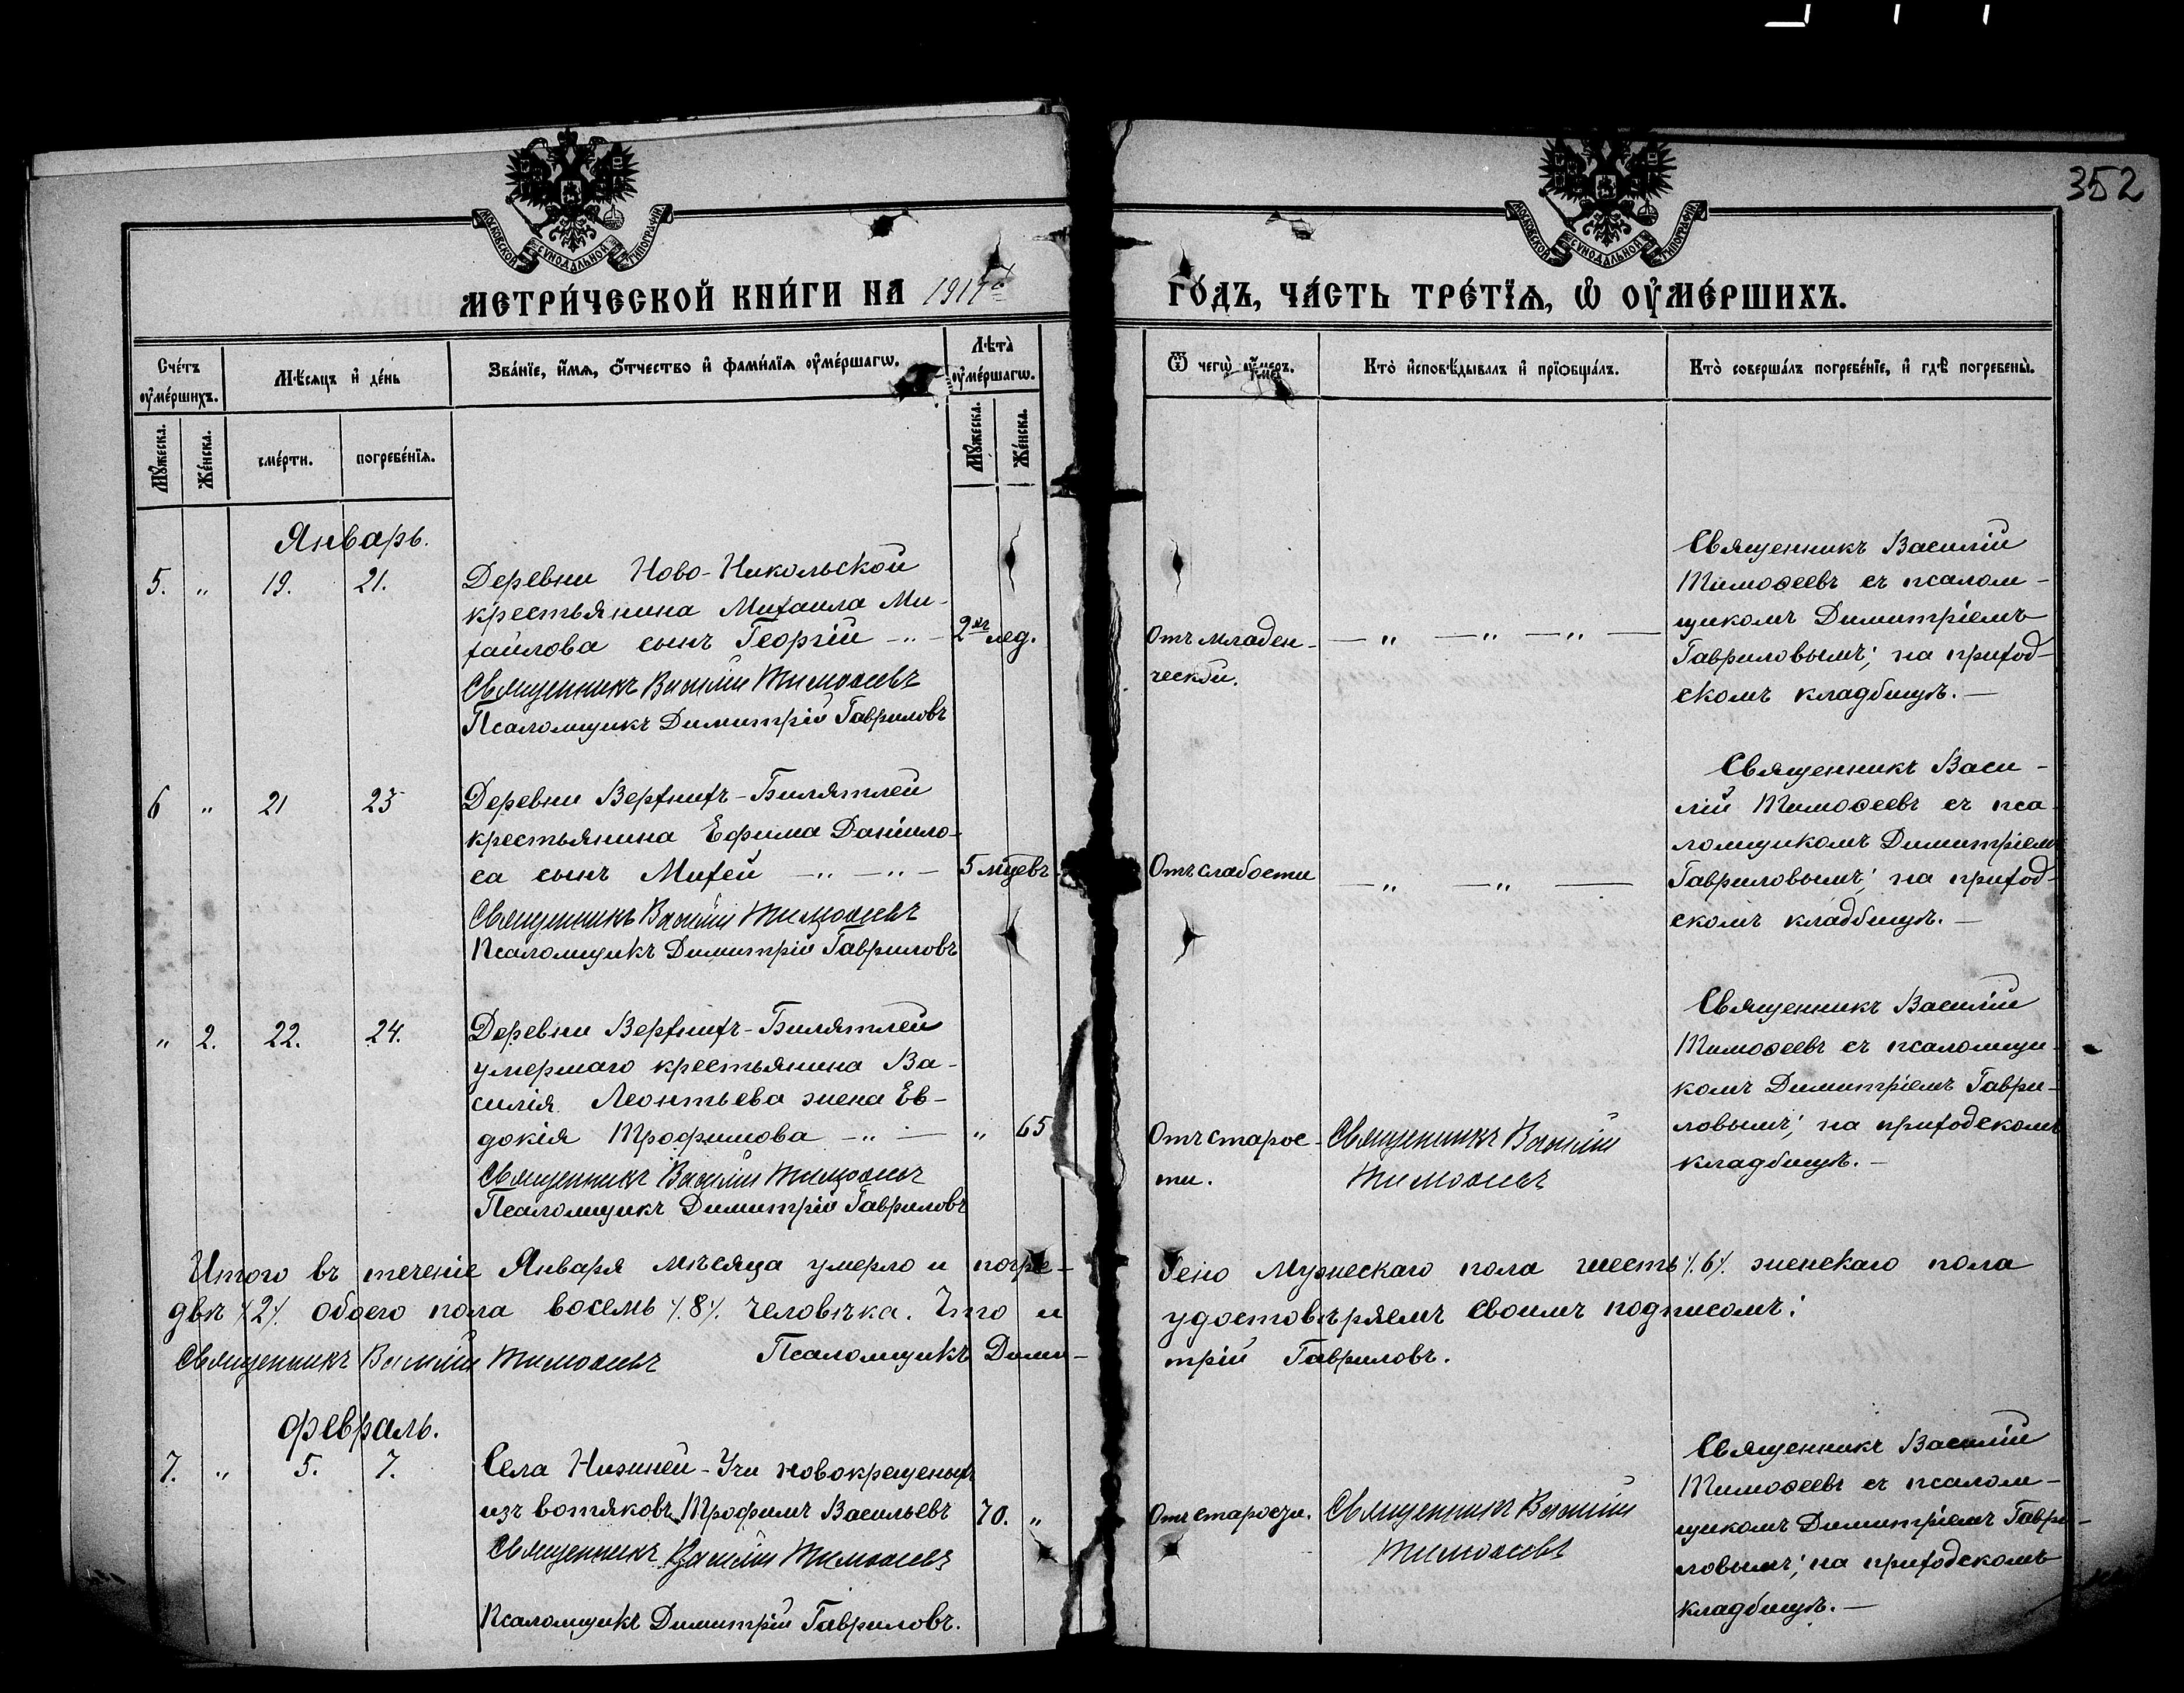 352
МОСКОВСКОЙ СѴНОДАЛЬНОЙ ТИПОГРАФІИ
МОСКОВСКОЙ СѴНОДАЛЬНОЙ ТИПОГРАФІИ
МЕТРИ́ЧЕСКОЙ КНИ́ГИ НА 1914й
ГО́ДЪ, ЧА́СТЬ ТРЕ́ТЇѦ, Ѡ҆ ОУ҆МЕ́РШИХЪ.
Сче́тъ оу҆ме́ршихъ.
Мѣ́сяцъ и҆ де́нь
Зва́нїе, и҆́мѧ, ѻ҆́тчество и҆ фами́лїѧ оу҆ме́ршагѡ.
Лѣта̀ оу҆ме́ршагѡ.
Ѿ чегѡ̀ оу҆́меръ.
Кто̀ и҆сповѣ́дывалъ и҆ прїѻбща́лъ.
Кто̀ соверша́лъ погребе́нїе, и҆ гдѣ̀ погребены̀.
Мꙋ́жеска.
Же́нска.
сме́рти.
погребе́нїѧ.
Мꙋ́жеска.
Же́нска.
Январь.
5. „ 19. 21.
Деревни Ново-Никольской
крестьянина Михаила Ми-
хайлова сынъ Георгій -„- 2хъ нед.
Священникъ Василій Тимоѳеевъ
Псаломщикъ Димитрій Гавриловъ
Отъ младен-
ческой.
— „ — „ — „ —
Священникъ Василій
Тимоѳеевъ съ псалом-
щикомъ Димитріемъ
Гавриловымъ; на приход-
скомъ кладбищѣ. —
6 „ 21 23
Деревни Верхнихъ-Билятлей
крестьянина Ефима Данило-
ва сынъ Михей -„- -„- 5 мцевъ
Священникъ Василій Тимоѳеевъ
Псаломщикъ Димитрій Гавриловъ
Отъ слабости
— „ — „ —
Священникъ Васи-
лій Тимоѳеевъ съ пса-
ломщикомъ Димитріемъ
Гавриловымъ; на приход-
скомъ кладбищѣ. —
„ 2. 22. 24.
Деревни Верхнихъ-Билятлей
умершаго крестьянина Ва-
силія Леонтьева жена Ев-
докія Трофимова -„- — „ 65
Священникъ Василій Тимоѳеевъ
Псаломщикъ Димитрій Гавриловъ
Отъ старос-
ти.
Священникъ Василій
Тимоѳеевъ
Священникъ Василій
Тимоѳеевъ съ псаломщи-
комъ Димитріемъ Гаври-
ловымъ; на приходскомъ
кладбищѣ. —
Итого въ теченіе Января мѣсяца умерло и погре-
бено мужескаго пола шесть /.6/. женскаго пола
двѣ /.2/. обоего пола восемь /.8/. человѣка. Что и
удостовѣряемъ своимъ подписомъ:
Священникъ Василій Тимоѳеевъ Псаломщикъ Дими-
трій Гавриловъ.
Февраль.
7. „ 5. 7.
Села Нижней-Учи новокрещеныхъ
изъ вотяковъ Трофимъ Васильевъ 70. „
Священникъ Василій Тимоѳеевъ
Псаломщикъ Димитрій Гавриловъ.
Отъ старости.
Священникъ Василій
Тимоѳеевъ
Священникъ Василій
Тимоѳеевъ съ псалом-
щикомъ Димитріемъ Гаври-
ловымъ; на приходскомъ
кладбищѣ. —